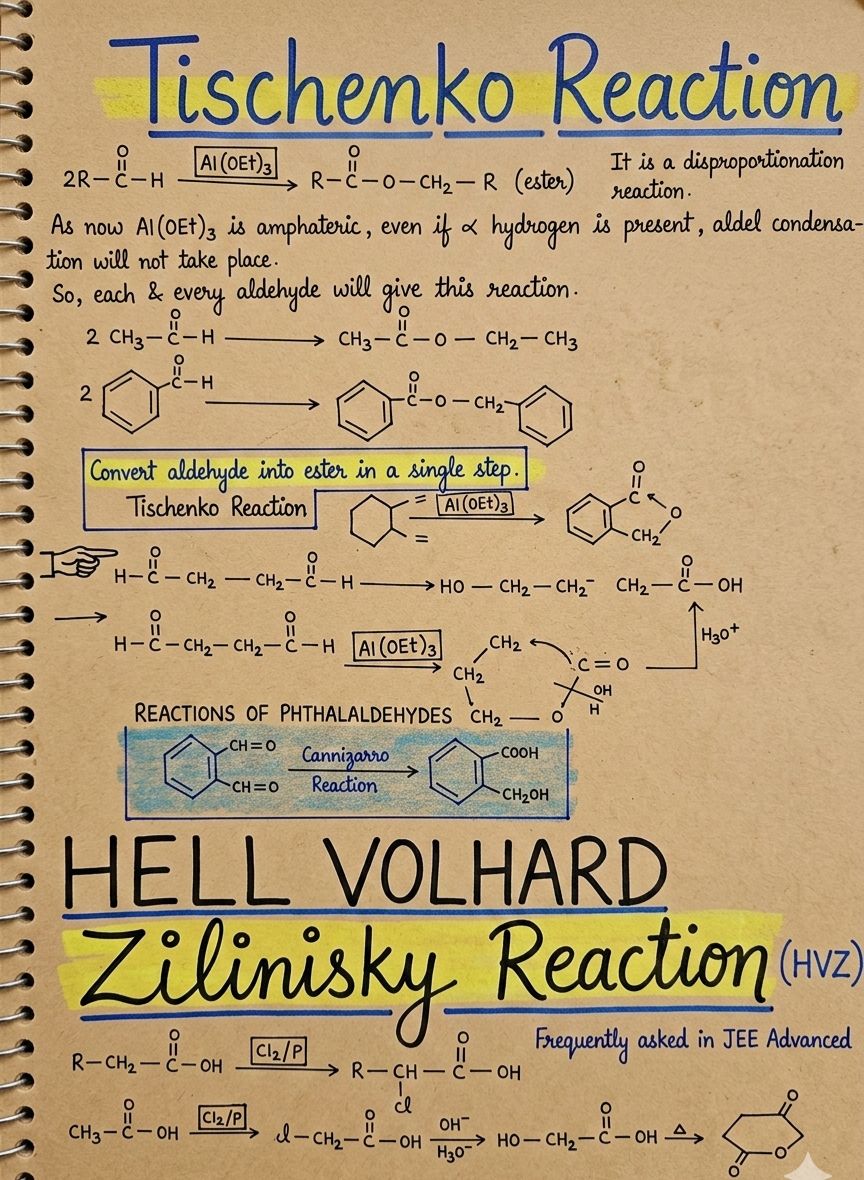 Tischenko Reaction
2R–C(=O)–H Al(OEt)₃ → R–C(=O)–O–CH₂–R (ester)
It is a disproportionation
reaction.
As now Al(OEt)₃ is amphateric, even if ∝ hydrogen is present, aldel condensa-
tion will not take place.
So, each & every aldehyde will give this reaction.
2 CH₃–C(=O)–H → CH₃–C(=O)–O–CH₂–CH₃
2 C(=O)–H → C(=O)–O–CH₂
Convert aldehyde into ester in a single step.
Tischenko Reaction
= = Al(OEt)₃ → O C CH₂ O
H–C(=O)–CH₂–CH₂–C(=O)–H → HO–CH₂–CH₂⁻ CH₂–C(=O)–OH
→ H–C(=O)–CH₂–CH₂–C(=O)–H Al(OEt)₃ → CH₂ CH₂ CH₂–O C=O OH H H₃O⁺
REACTIONS OF PHTHALALDEHYDES
CH=O CH=O Cannizarro Reaction → COOH CH₂OH
HELL VOLHARD
Zilinisky Reaction (HVZ)
Frequently asked in JEE Advanced
R–CH₂–C(=O)–OH Cl₂/P → R–CH–C(=O)–OH
cl
CH₃–C(=O)–OH Cl₂/P → cl–CH₂–C(=O)–OH OH⁻ H₃O⁻ → HO–CH₂–C(=O)–OH Δ → O O O